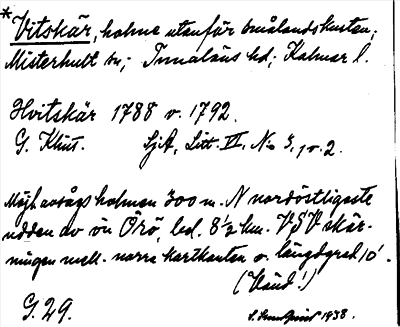 *Vitskär, holme utanför Smålandskusten;
Misterhult sn; Tunaläns hd; Kalmar l.
Hvitskär 1788 o. 1792.
G. Klint. SjA, Litt. VI, No 3, 1 o. 2.
Möjl. avsågs holmen 300 m. N nordöstligaste
udden av ön Örö, bel. 8½ km. VSV skär-
ningen mell. norra kartkanten o. längdgrad 10'.
(Vänd!)
G. 29. 1938.